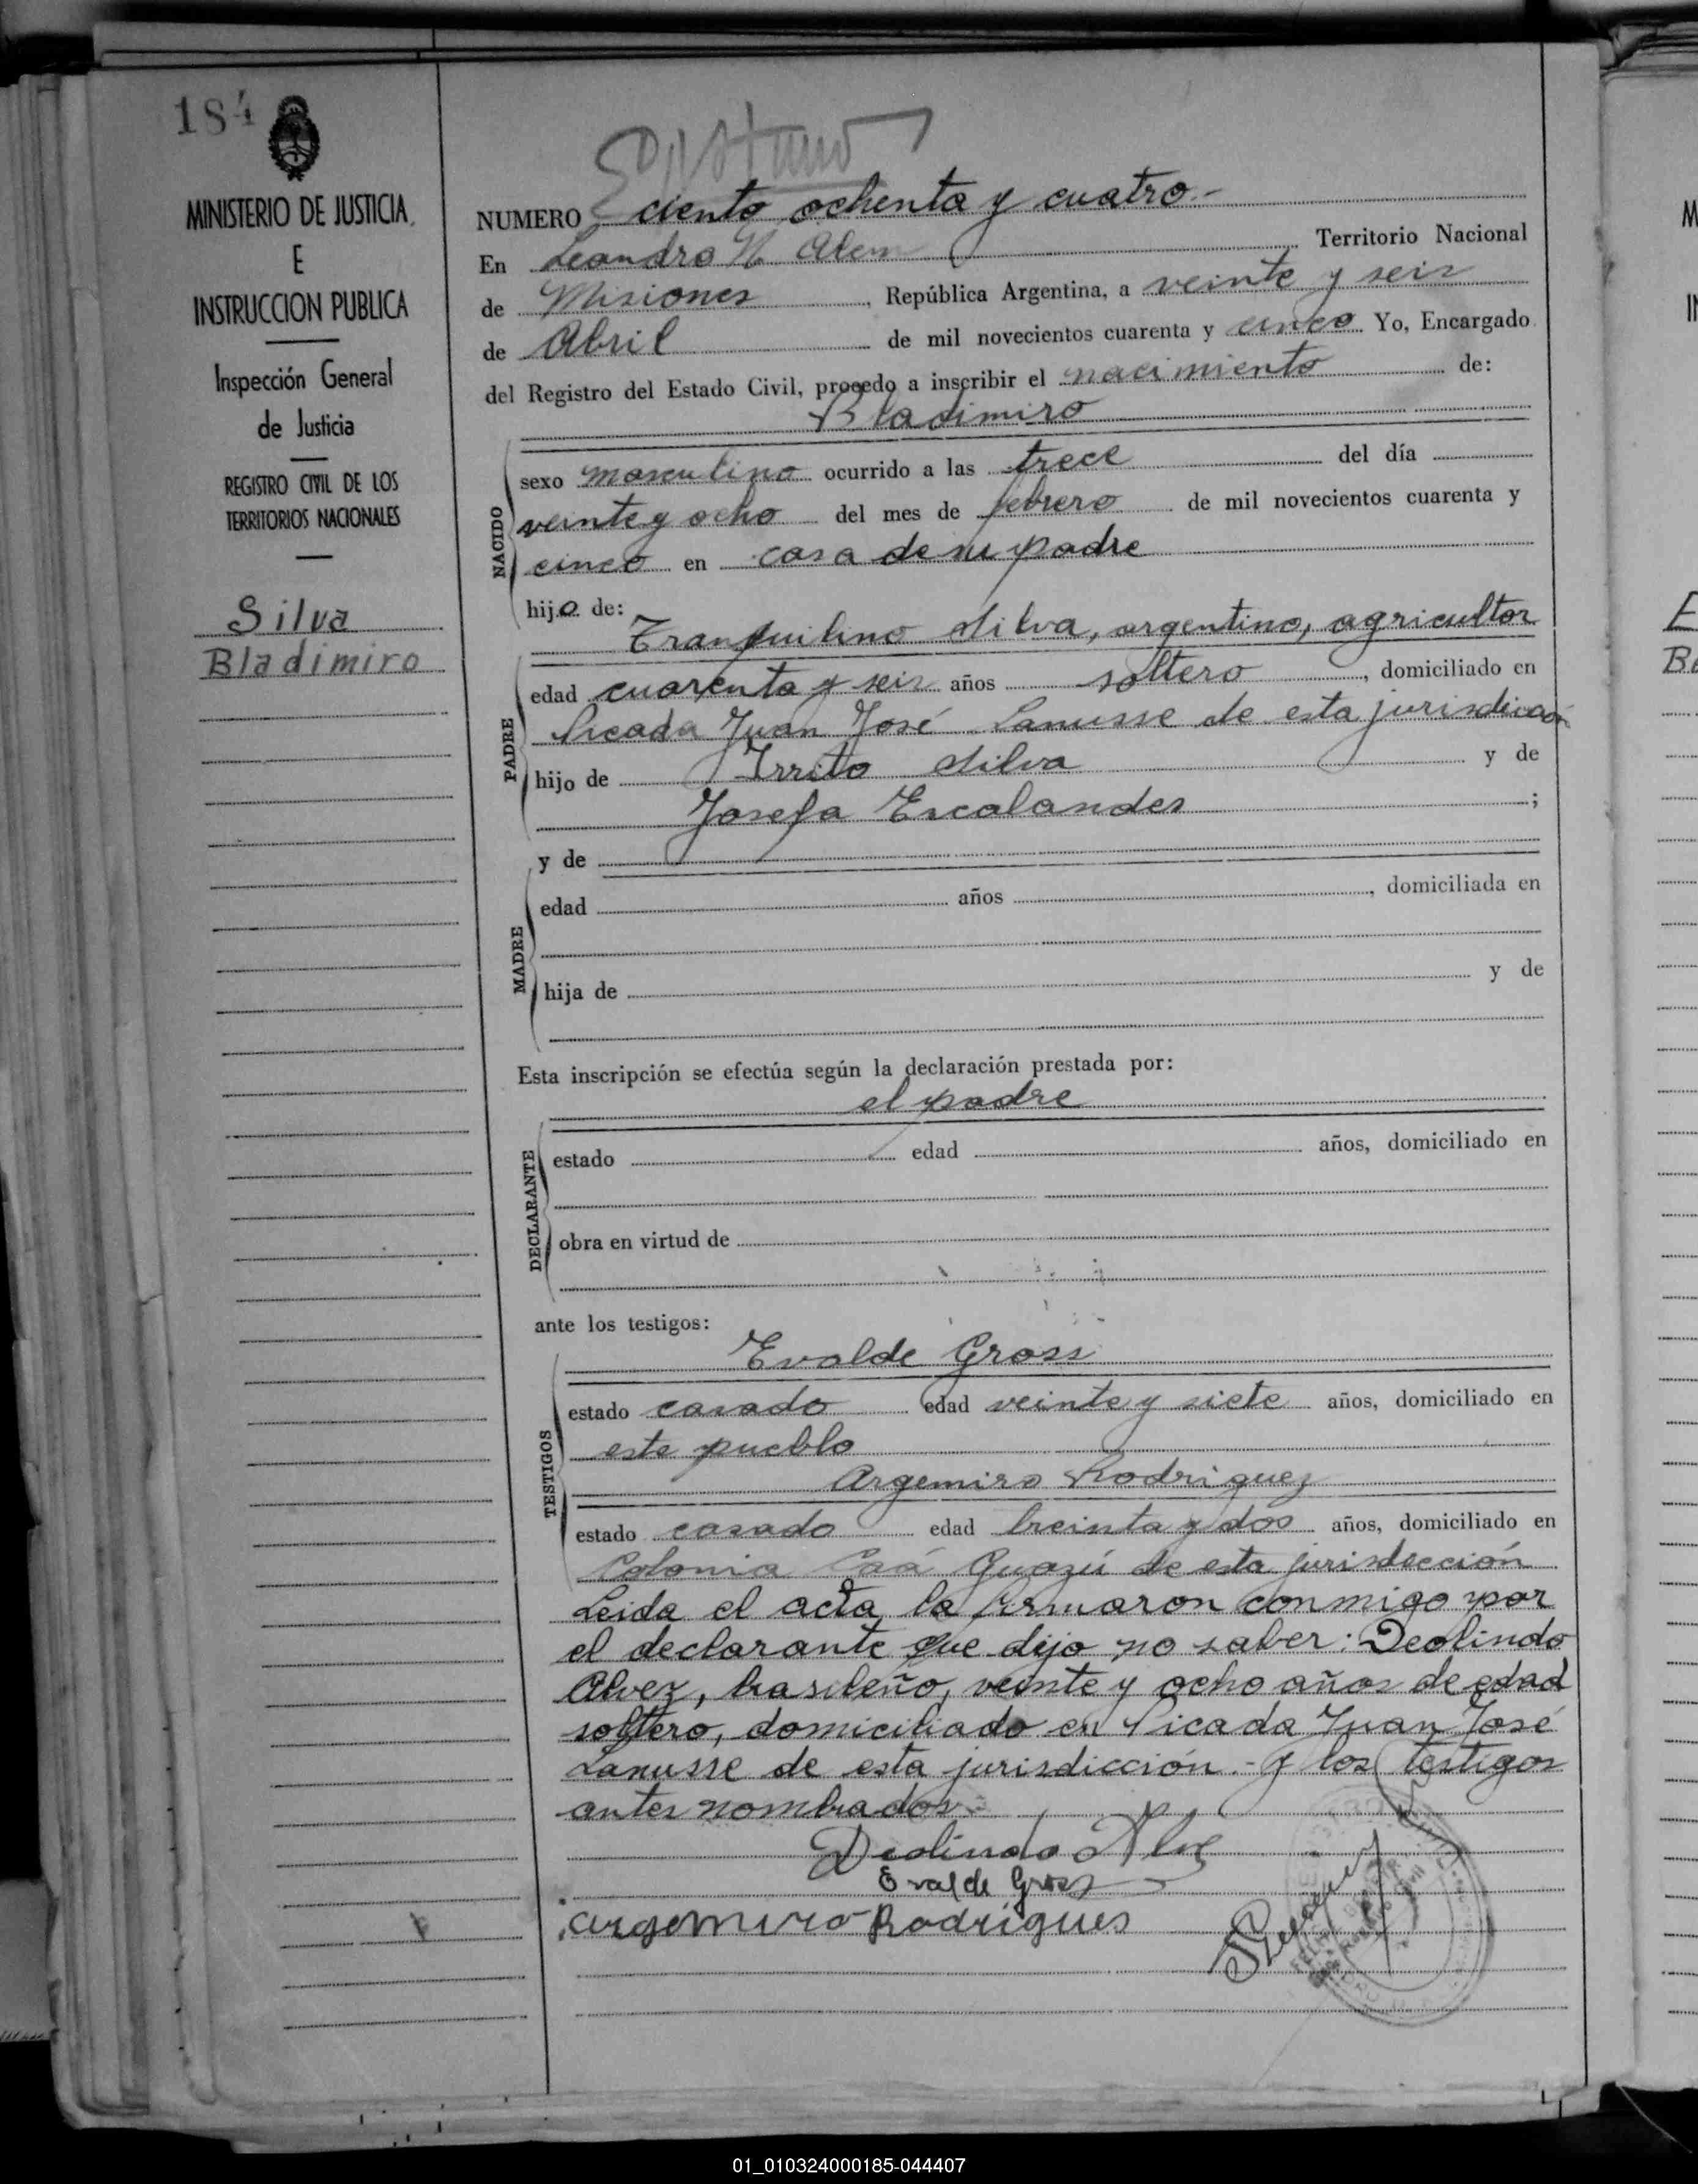 184
MINISTERIO DE JUSTICIA
E
INSTRUCCION PUBLICA
Inspección General
de Justicia
REGISTRO CIVIL DE LOS
TERRITORIOS NACIONALES
Silva
Bladimiro
NUMERO ciento ochenta y cuatro.-
En Leandro N. Alem Territorio Nacional
de Misiones, República Argentina, a veinte y seis
de Abril de mil novecientos cuarenta y cinco Yo, Encargado
del Registro del Estado Civil, procedo a inscribir el nacimiento de:
Bladimiro
NACIDO
sexo masculino ocurrido a las trece del día
veinte y ocho del mes de febrero de mil novecientos cuarenta y
cinco en casa de su padre
hijo de:
Tranquilino Silva, argentino, agricultor
PADRE
edad cuarenta y seis años soltero, domiciliado en
Picada Juan José Lanusse de esta jurisdicción
hijo de Irrito Silva y de
Josefa Escalandes;
y de
MADRE
edad años, domiciliada en
hija de y de
Esta inscripción se efectúa según la declaración prestada por:
el padre
DECLARANTE
estado edad años, domiciliado en
obra en virtud de
ante los testigos:
Evalde Gross
TESTIGOS
estado casado edad veinte y siete años, domiciliado en
este pueblo
Argemiro Rodriguez
estado casado edad treinta y dos años, domiciliado en
Colonia Caá Guazú de esta jurisdección
Leida el acta la firmaron conmigo por
el declarante que dijo no saber: Deolindo
Alvez, brasileño, veinte y ocho años de edad
soltero, domiciliado en Picada Juan José
Lanusse de esta jurisdicción.- y los testigos
antes nombrados.-
Deolindo Alvez
Evalde Gross
Argemiro Rodrigues
01_010324000185-044407